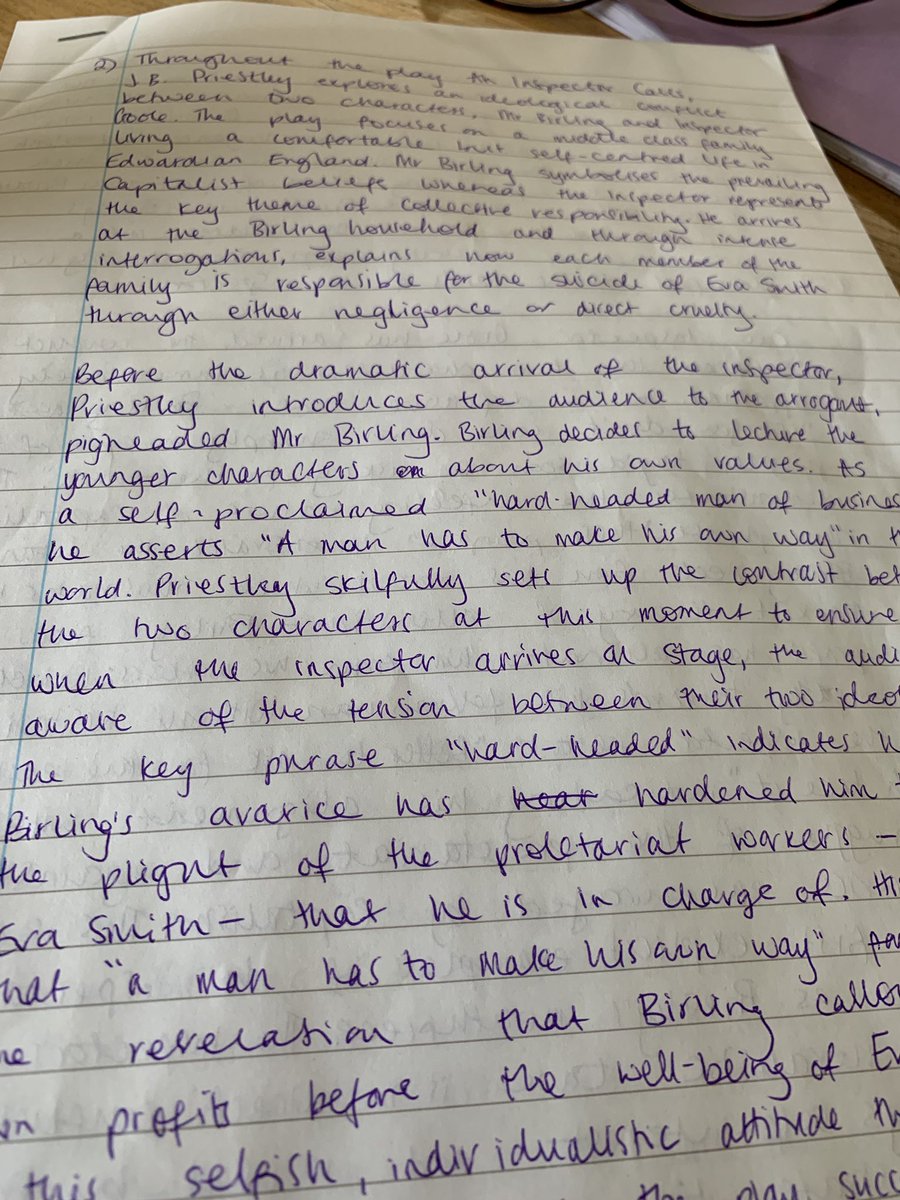 2) Throughout the play An Inspector Calls,
J.B. Priestley explores an ideological conflict
between two characters, Mr Birling and Inspector
Goole. The play focuses on a middle class family
living a comfortable but self-centred life in
Edwardian England. Mr Birling symbolises the prevailing
Capitalist beliefs whereas the inspector represents
the key theme of collective responsibility. He arrives
at the Birling household and through intense
interrogations, explains how each member of the
family is responsible for the suicide of Eva Smith
through either negligence or direct cruelty.
Before the dramatic arrival of the inspector,
Priestley introduces the audience to the arrogant,
pigheaded Mr Birling. Birling decides to lecture the
younger characters about his own values. As
a self-proclaimed "hard-headed man of busines
he asserts "A man has to make his own way" in t
world. Priestley skilfully sets up the contrast bet
the two characters at this moment to ensure
when the inspector arrives on stage, the audi
aware of the tension between their two ideo
The key phrase "hard-headed" indicates
Birling's avarice has hardened him
the plight of the proletariat workers –
Eva Smith – that he is in charge of. Th
hat "a man has to make his own way"
revelation that Birling callou
profits before the well-being of E
this selfish, individualistic attitude
the play succ